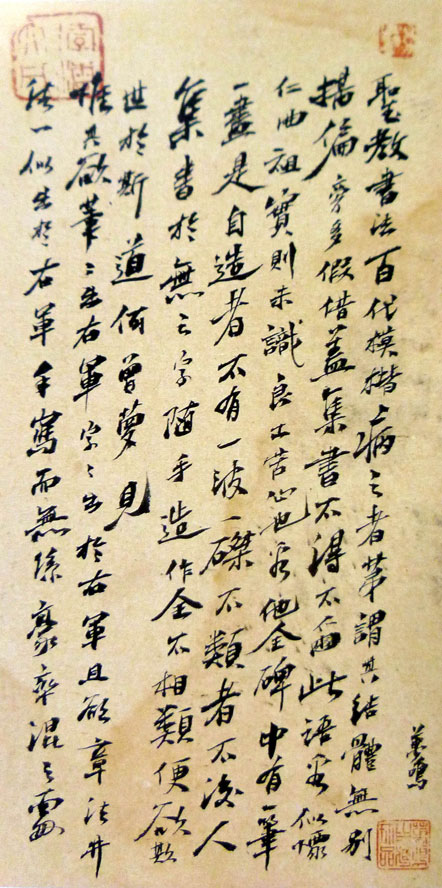 聖教書法百代模楷病之者第謂其結體無別
搆偏旁多假借蓋集書不得不爾此語似懷
仁曲祖實則未識良工苦心也他全碑中有一筆
一畫是自造者不有一波一磔不類者不後人
集書於無之字隨手造作全不相類便欲欺
世於斯道何曾夢見
惟其欲筆〻出右軍字〻出於右軍且欲章法井
法一似出於右軍手寫而無絲毫牽混之